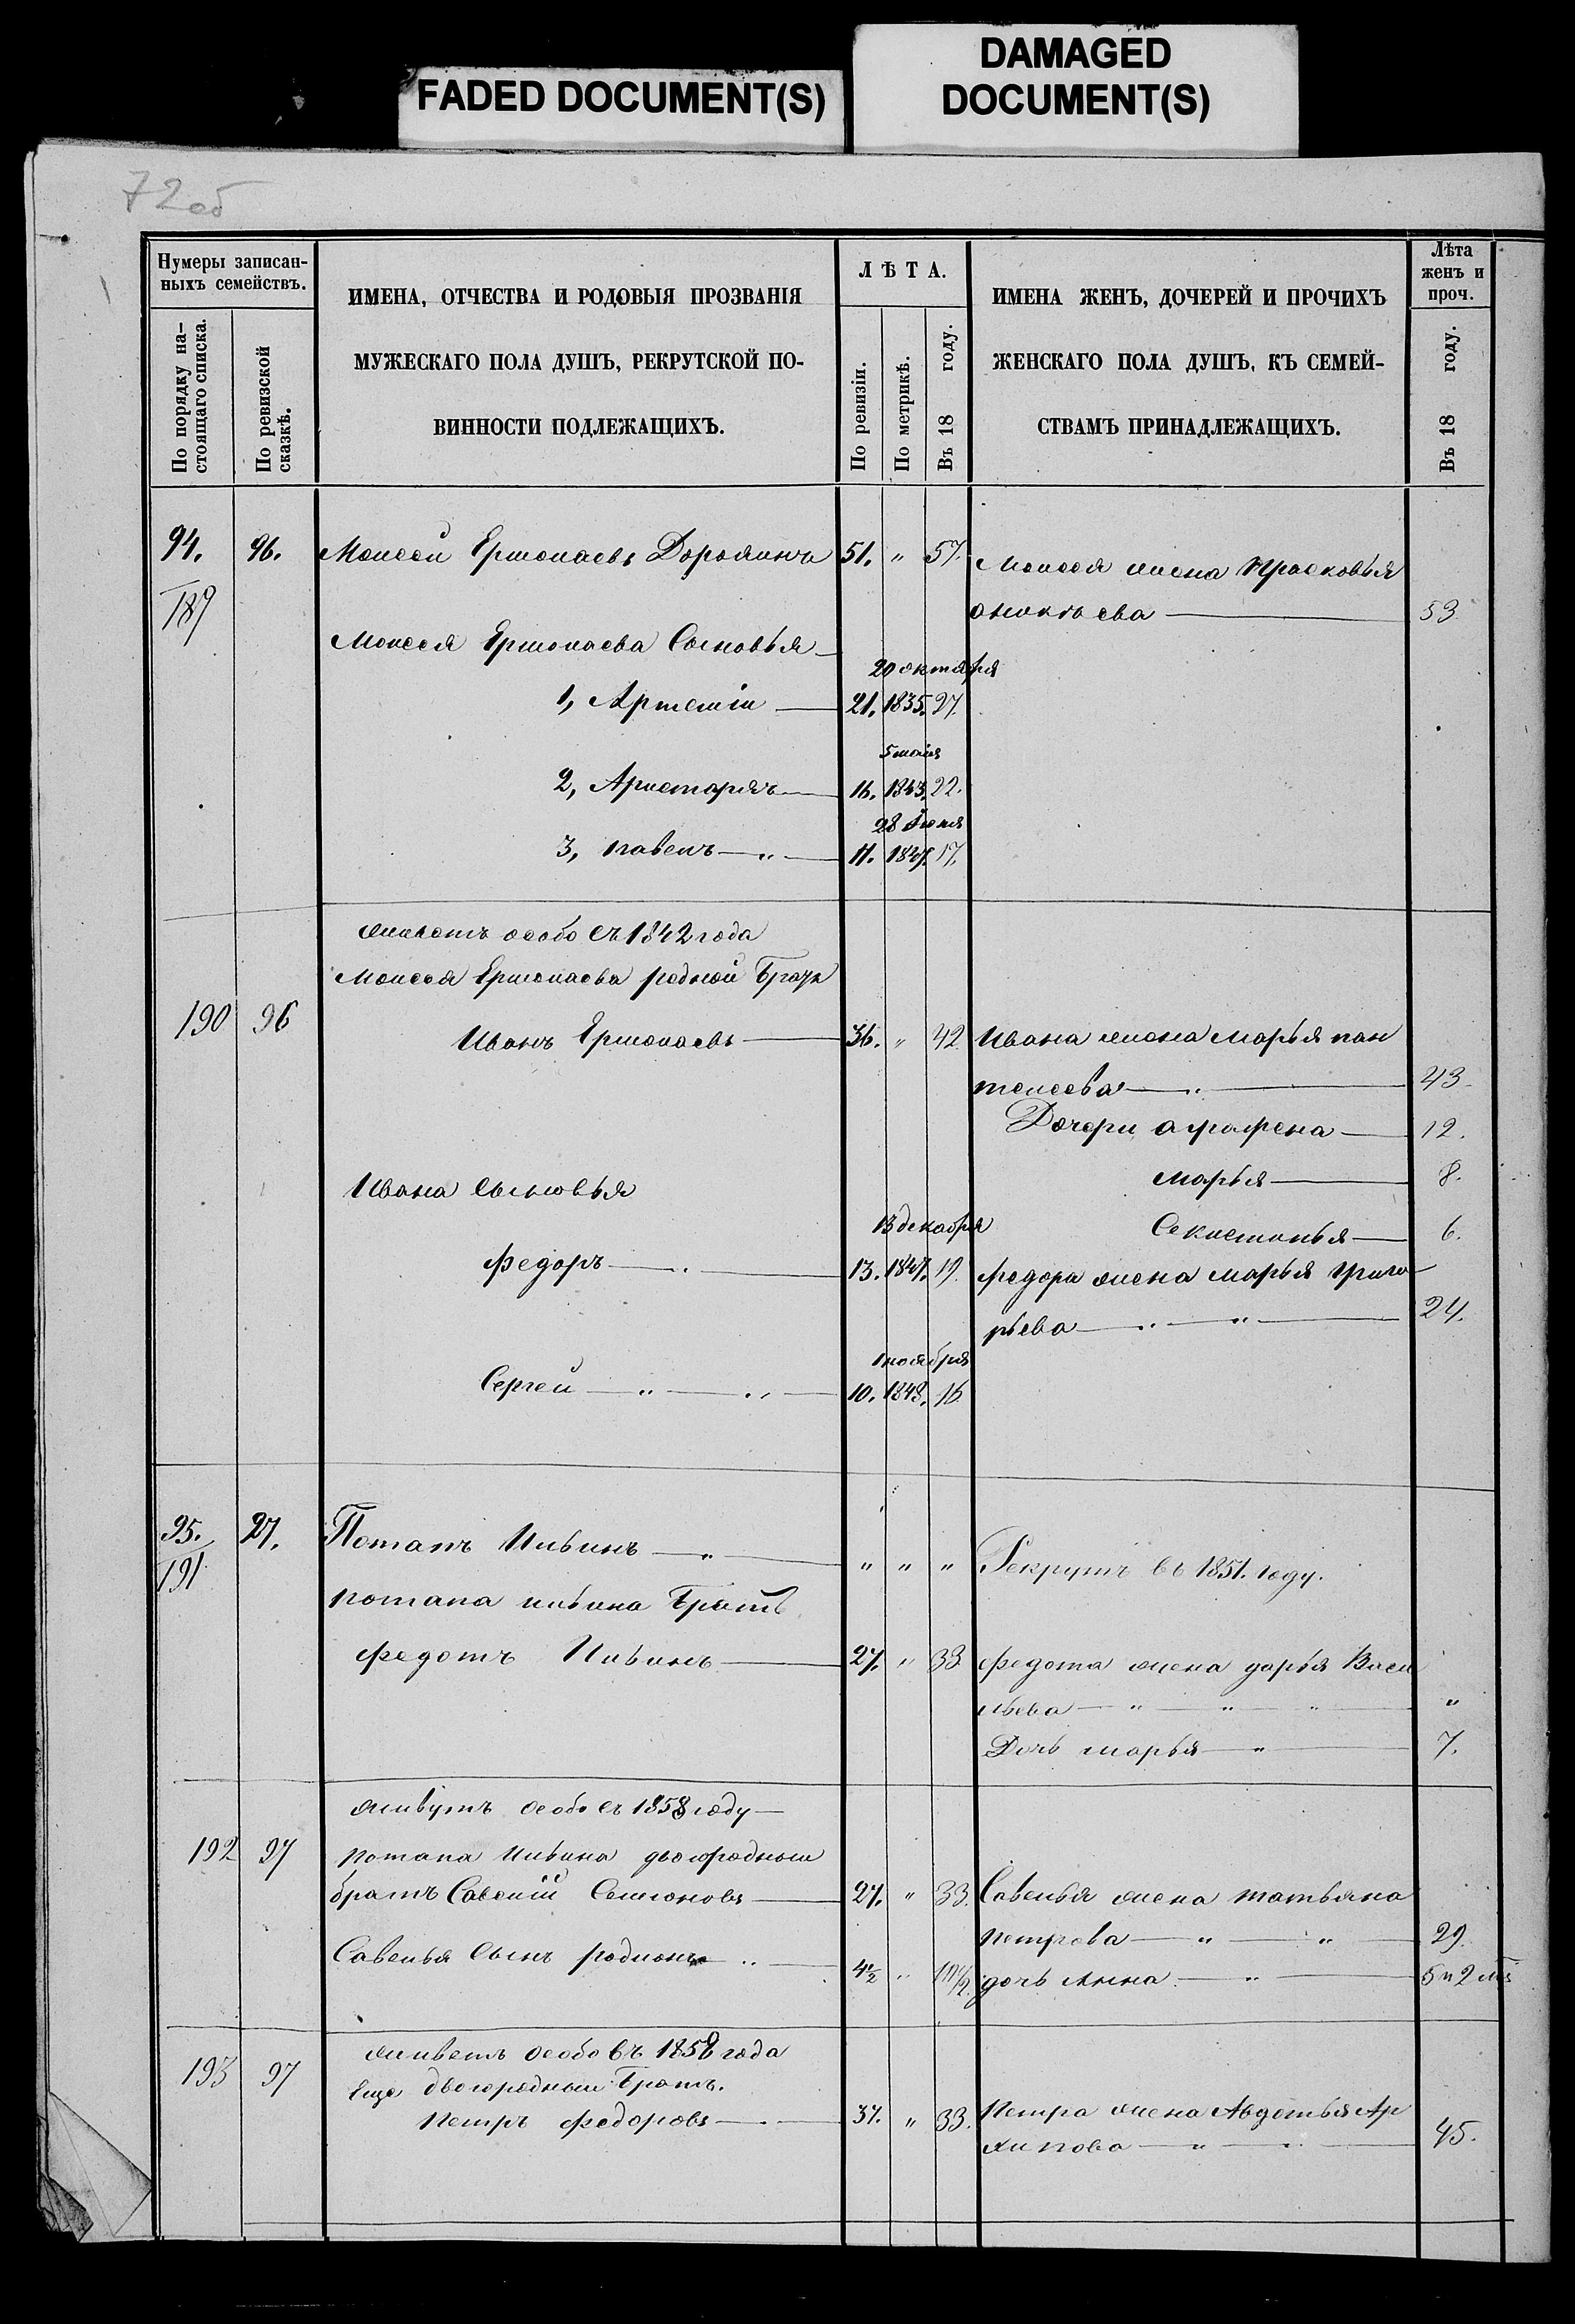 FADED DOCUMENT(S)
DAMAGED
DOCUMENT(S)
72об
Нумеры записан-
ныхъ семействъ.
По порядку на-
стоящаго списка.
По ревизской
сказкѣ.
ИМЕНА, ОТЧЕСТВА И РОДОВЫЯ ПРОЗВАНІЯ
МУЖЕСКАГО ПОЛА ДУШЪ, РЕКРУТСКОЙ ПО-
ВИННОСТИ ПОДЛЕЖАЩИХЪ.
ЛѢТА.
По ревизіи.
По метрикѣ.
Въ 18 году.
ИМЕНА ЖЕНЪ, ДОЧЕРЕЙ И ПРОЧИХЪ
ЖЕНСКАГО ПОЛА ДУШЪ, КЪ СЕМЕЙ-
СТВАМЪ ПРИНАДЛЕЖАЩИХЪ.
Лѣта
женъ и
проч.
Въ 18 году.
94. 96. Моисей Ермолаевъ 51. " 57. Моисея жена Прасковья
189
53
Моисея Ермолаева Сыновья
20 октября
1, Артемій 21. 1835. 27.
5 маія
2, Аристархъ 16. 1843. 22.
28 Іюня
3, павелъ " 11. 1847. 17.
живетъ особо съ 1842 года
Моисея Ермолаева родной Братъ
190 96 Иванъ Ермолаевъ 36. " 42 Ивана жена марья пан
телеева " 43
Дочери аграфена 12.
марья 8.
Ивана сыновья
13 декабря
6.
федоръ " 13. 1847. 19. федора жена марья григо
рьева " " 24.
1 ноября
Сергей " " 10. 1848. 16
95. 97. Потапъ Ильинъ " " " " Рекрутъ въ 1851. году.
191
потапа ильина Братъ
федотъ Ильинъ 27. " 33 федота жена дарья Васи
льева " " " "
Дочь марья " 7.
живутъ особо съ 1858 году
192 97 потапа Ильина двоюродный
братъ Савелій Семионовъ 27. " 33. Савелья жена татьяна
петрова " " 29.
Савелья Сынъ родионъ " 4½ " 10½ дочь Анна " 5 и 2 мѣ
живетъ особо въ 1858 года
193 97 Еще двоюродный Братъ.
петръ федоровъ 37. " 33. Петра жена Авдотья Ар
хипова " " 45.